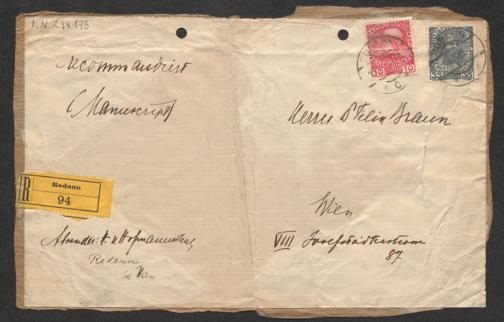 I.N. 244.193
recommandiert
(Manuscript)
Herrn Dr Felix Braun
Wien
VIII Josefstädterstrasse
87.
R
Rodaun
94
Absender: H. v Hofmannsthal
Rodaun
bei Wien
10
10